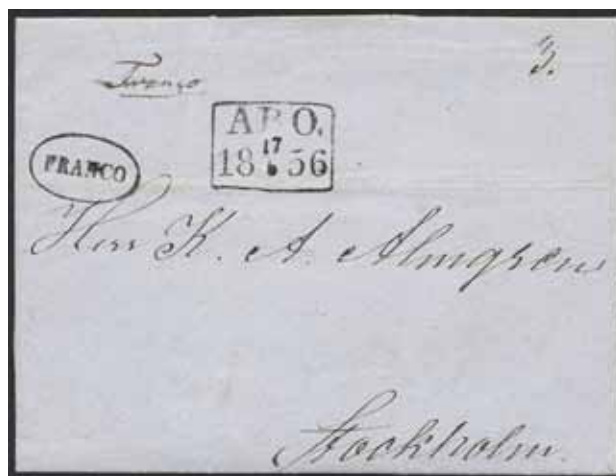 Franco
3.
FRANCO
ABO.
17
18 6 56
Herr K. A. Almgren
Stockholm.